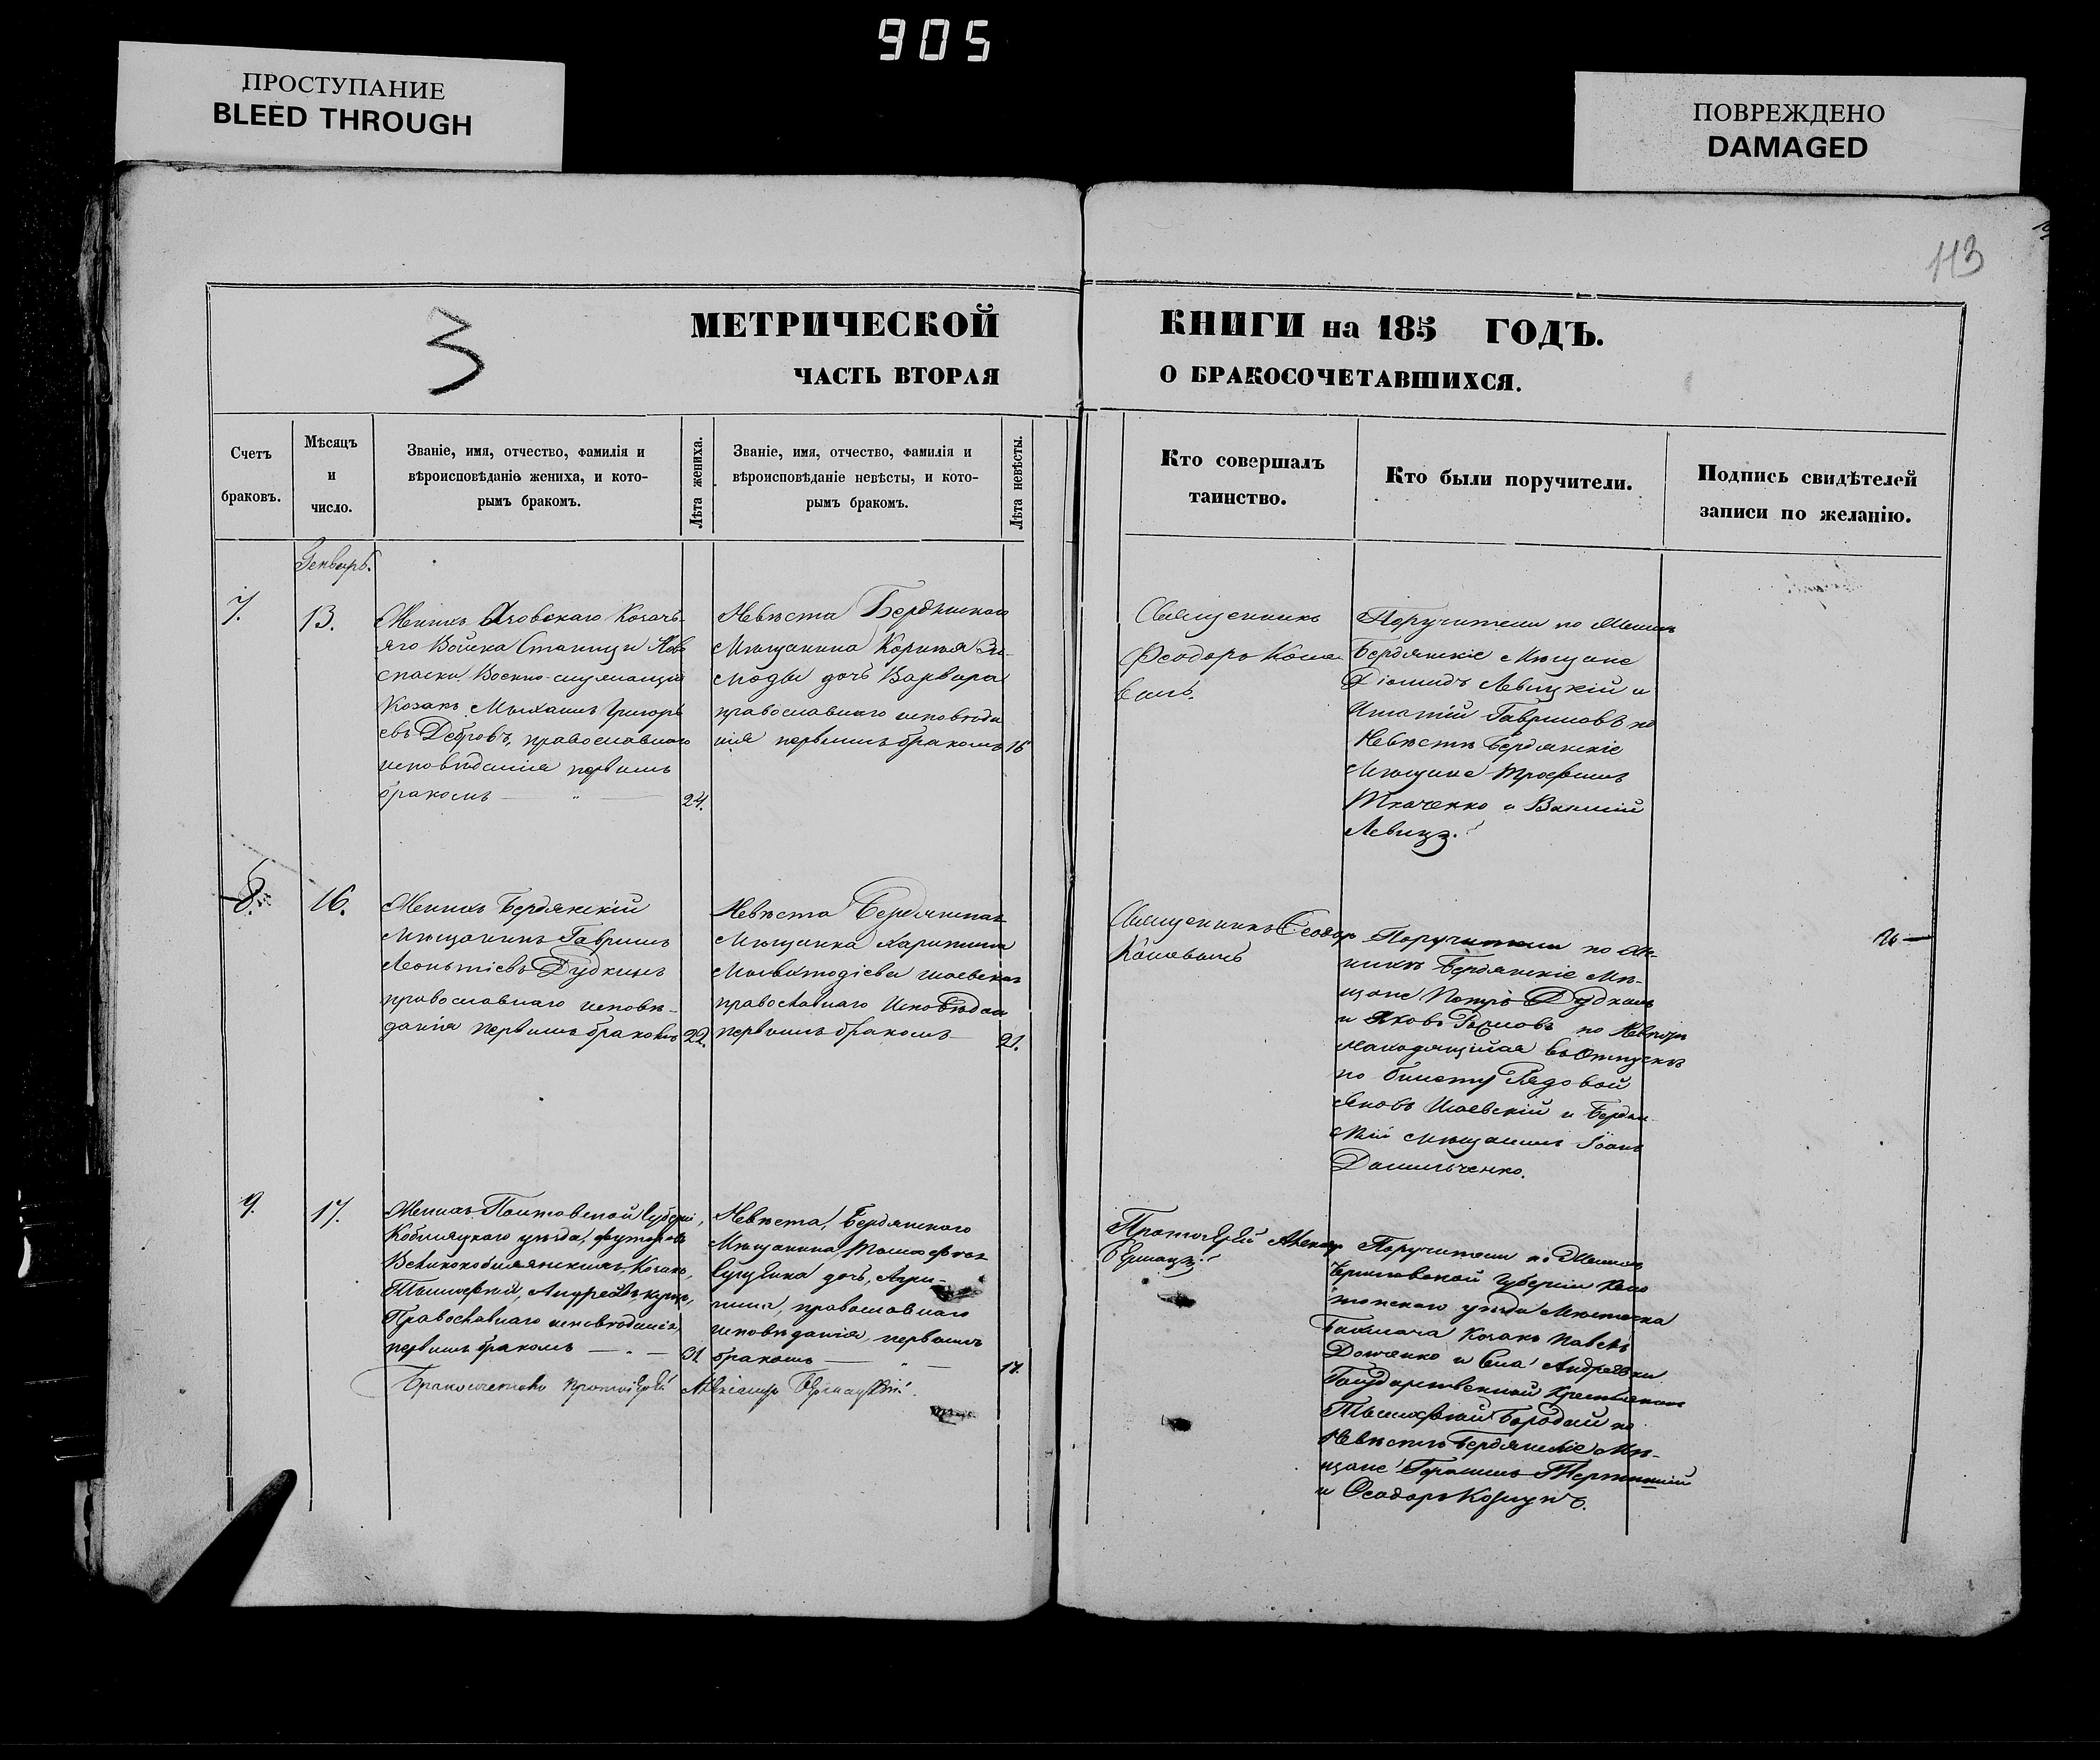 905
ПРОСТУПАНИЕ
BLEED THROUGH
ПОВРЕЖДЕНО
DAMAGED
113
3
МЕТРИЧЕСКОЙ
ЧАСТЬ ВТОРАЯ
КНИГИ на 185 ГОДЪ.
О БРАКОСОЧЕТАВШИХСЯ.
Счетъ
браковъ.
Мѣсяцъ
и
число.
Званіе, имя, отчество, фамилія и
вѣроисповѣданіе жениха, и кото-
рымъ бракомъ.
Лѣта жениха.
Званіе, имя, отчество, фамилія и
вѣроисповѣданіе невѣсты, и кото-
рымъ бракомъ.
Лѣта невѣсты.
Кто совершалъ
таинство.
Кто были поручители.
Подпись свидѣтелей
записи по желанію.
Генварь.
7.
13.
Женихъ Азовскаго Козачь-
яго Войска Станицы Ново
спаски Военно-служащій
Козакъ Михаилъ Григорь
евъ, православного
исповѣданія первымъ
бракомъ
24.
Невѣста Бердянскаго
Мѣщанина
дочь Варвара
православнаго исповѣда
нія первымъ бракомъ
16
Священникъ
Феодоръ
Поручители по Женихѣ
Бердянскіе Мѣщане
Діомидъ Левицкій и
Гавриловъ по
Невѣстѣ Бердянскіе
Мѣщане Трофимъ
Ткаченко и Василій
8.
16.
Женихъ Бердянскій
Мѣщанинъ Гавріилъ
Леонтіевъ Дудкинъ
православнаго исповѣ-
данія первымъ бракомъ
22.
Невѣста Бердянская
Мѣщанка Харитина
православнаго Исповѣдан
первымъ бракомъ
21.
Священникъ Феодоръ
Поручители по Же-
нихѣ Бердянскіе Мѣ-
щане Петръ Дудкинъ
и Яковъ по Невѣстѣ
находящійся въ Отпускѣ
по билету Рядовой
Яковъ и Бердян
скій Мѣщанинъ Іоанъ
Данильченко.
9.
17.
Женихъ Полтавской Губерніи,
Кобиляцкаго уѣзда, хуторовъ
Великокобилянскихъ, Козакъ,
Тимофей, Андреевъ
Православнаго исповѣданія,
первымъ бракомъ
31
Невѣста, Бердянскаго
Мѣщанина,
дочь, Агри-
пина, православнаго
исповѣданія, первымъ
бракомъ
17.
Протоіерей
Поручители по Женихѣ
Черниговской Губерніи Коно
топскаго уѣзда Мѣстечка
Бахмача Козакъ Павелъ
и Села Андреевки
Государственной Крестьянинъ
Тимофей Бородай по
Невѣстѣ Бердянскіе Мѣ-
щане Герасимъ
и Феодоръ
Бракосочеталъ Протоіерей